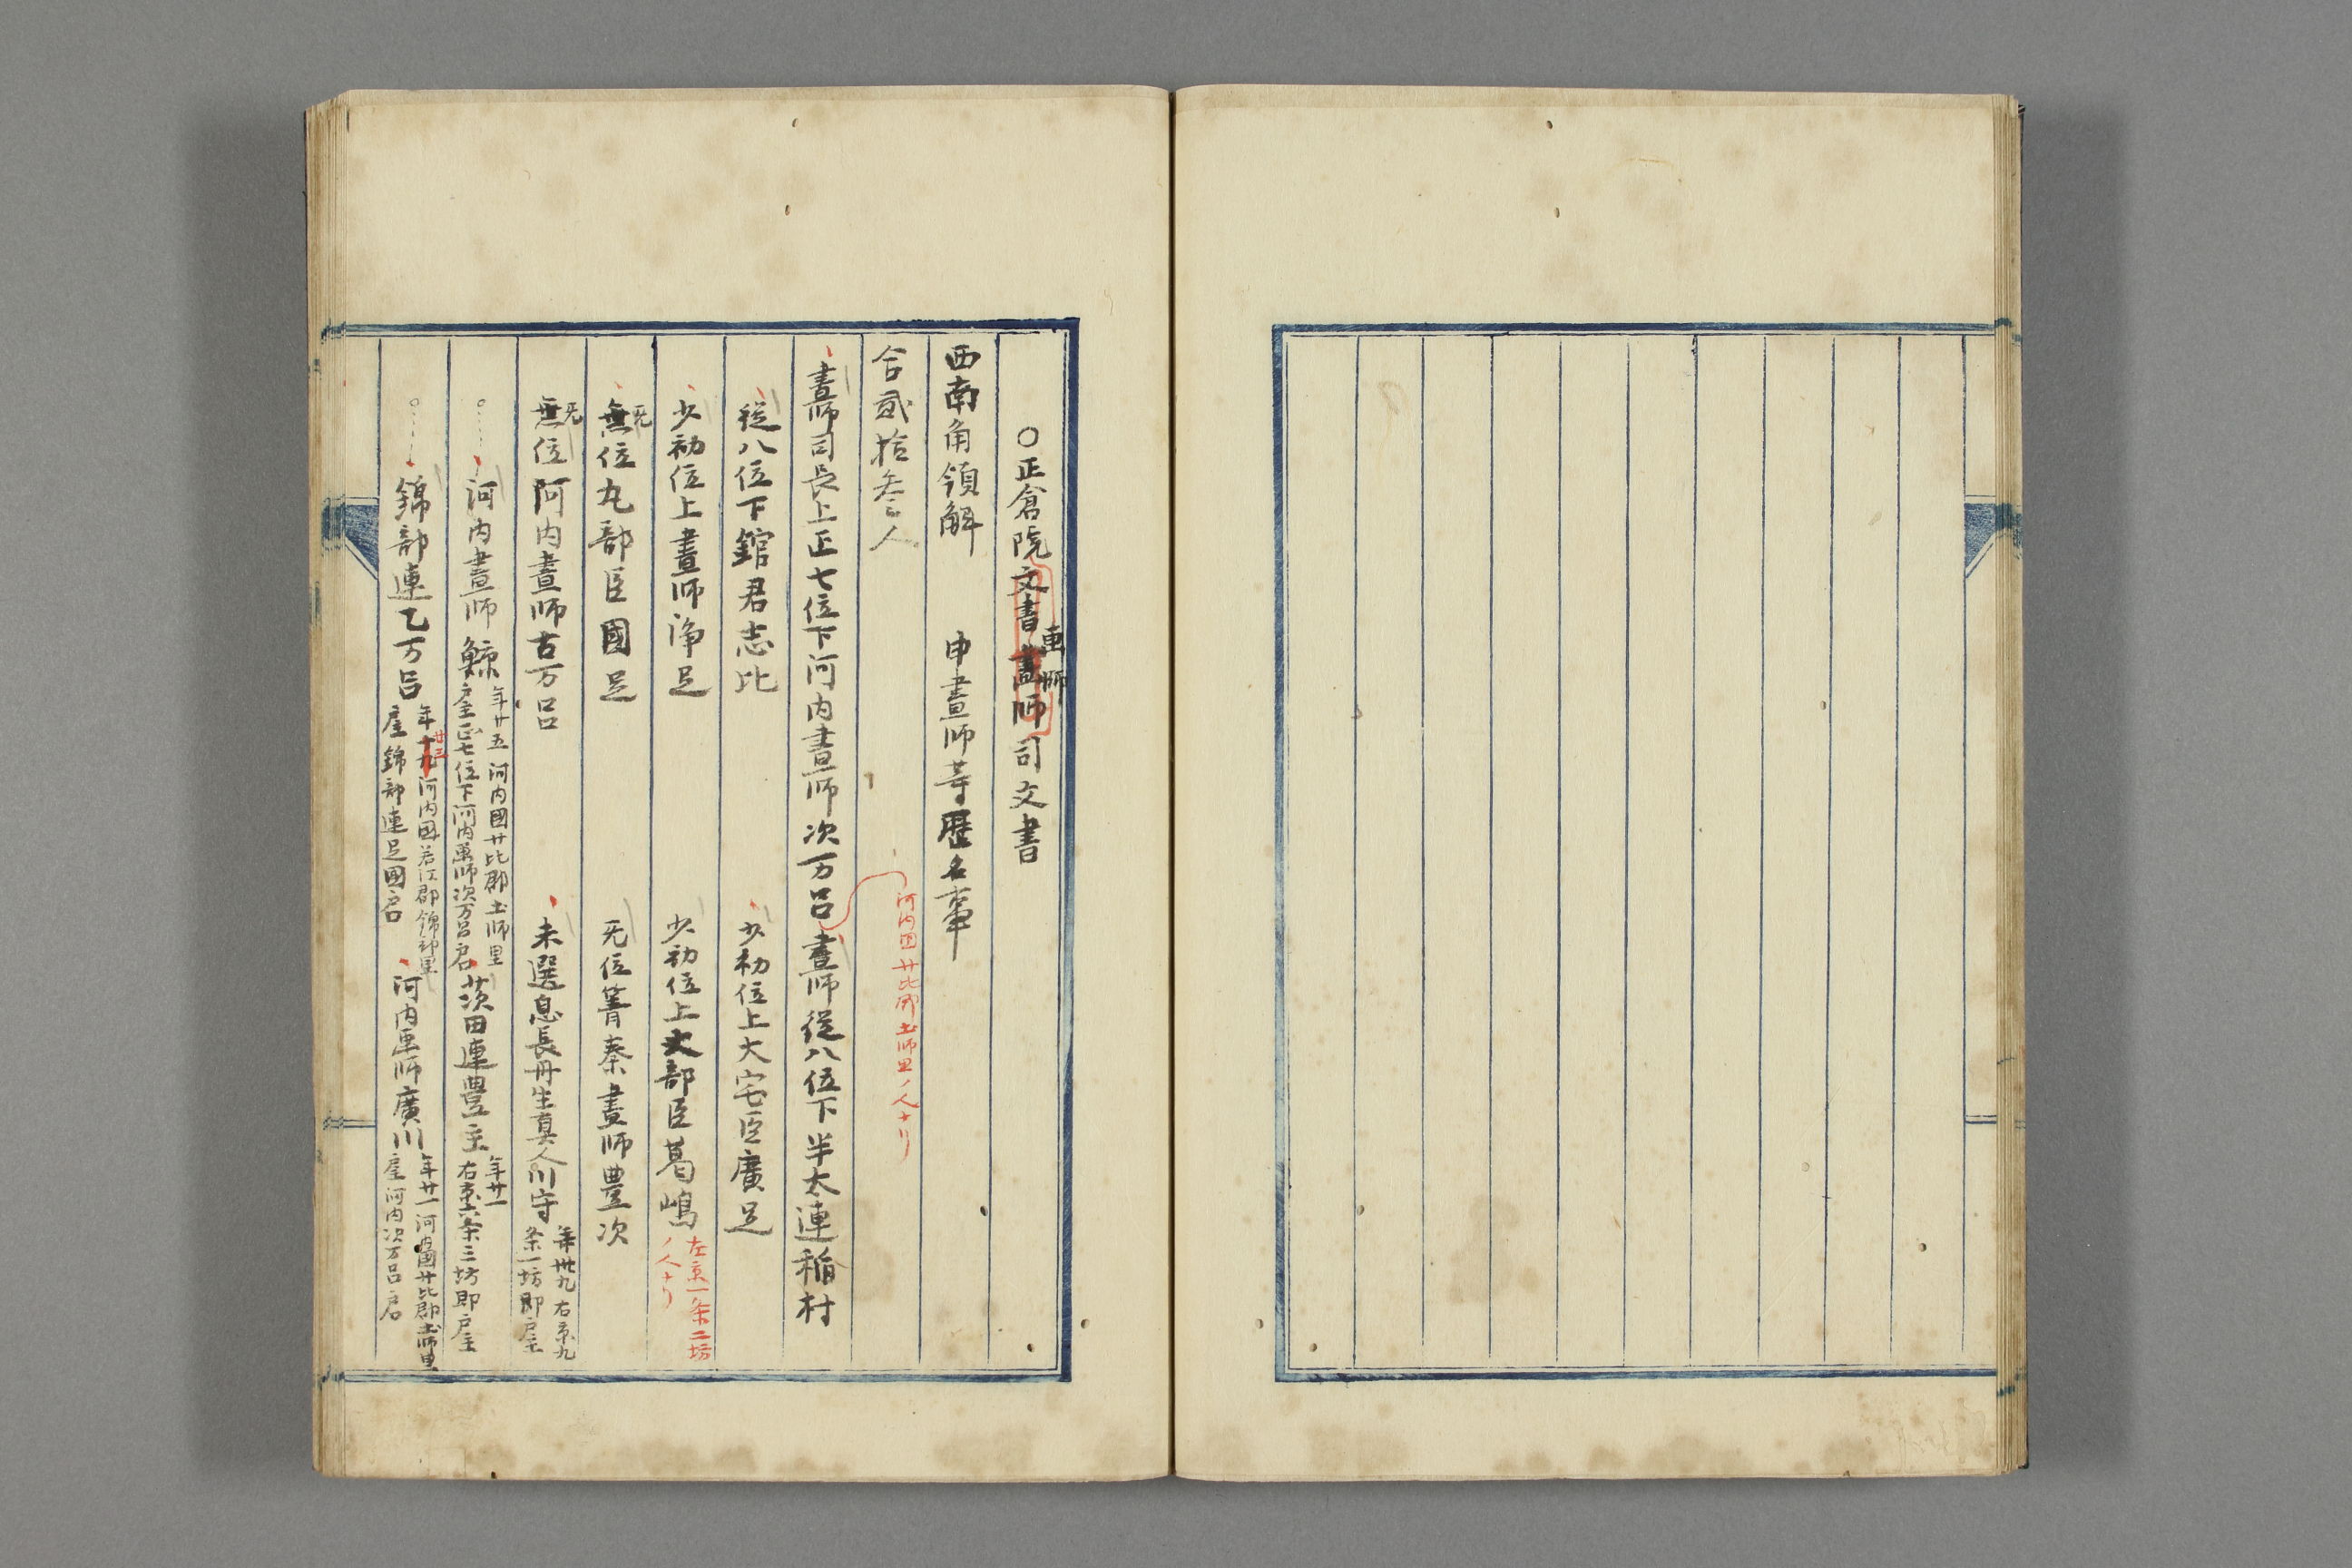 ○正倉院文書畫師司文書
画師
西南角領解　申畫師等歴名事
合貳拾叁人
河内国廿比郡土師里ノ人ナリ
畫師司長上正七位下河内畫師次万呂　畫師從八位下半太連稲村
從八位下錧君志比　少初位上大宅臣廣足
少初位上畫師浄足　少初位上丈部臣葛嶋
左京一条二坊
ノ人ナリ
无
無位丸部臣國足　无位簀秦畫師豊次
无
無位阿内畫師古万呂　未選息長丹生真人川守
年卅九右京九
条一坊即戸主
河内畫師鯨
年廿五河内國廿比郡土師里
戸主正七位下河内画師次万呂戸
茨田連豊主
年廿一
右京六条三坊即戸主
錦部連乙万呂
年十九河内国若江郡錦部里
廿三
戸主錦部連足國戸
河内画師廣川
年廿一河内國廿比郡土師里
戸主河内次万呂戸